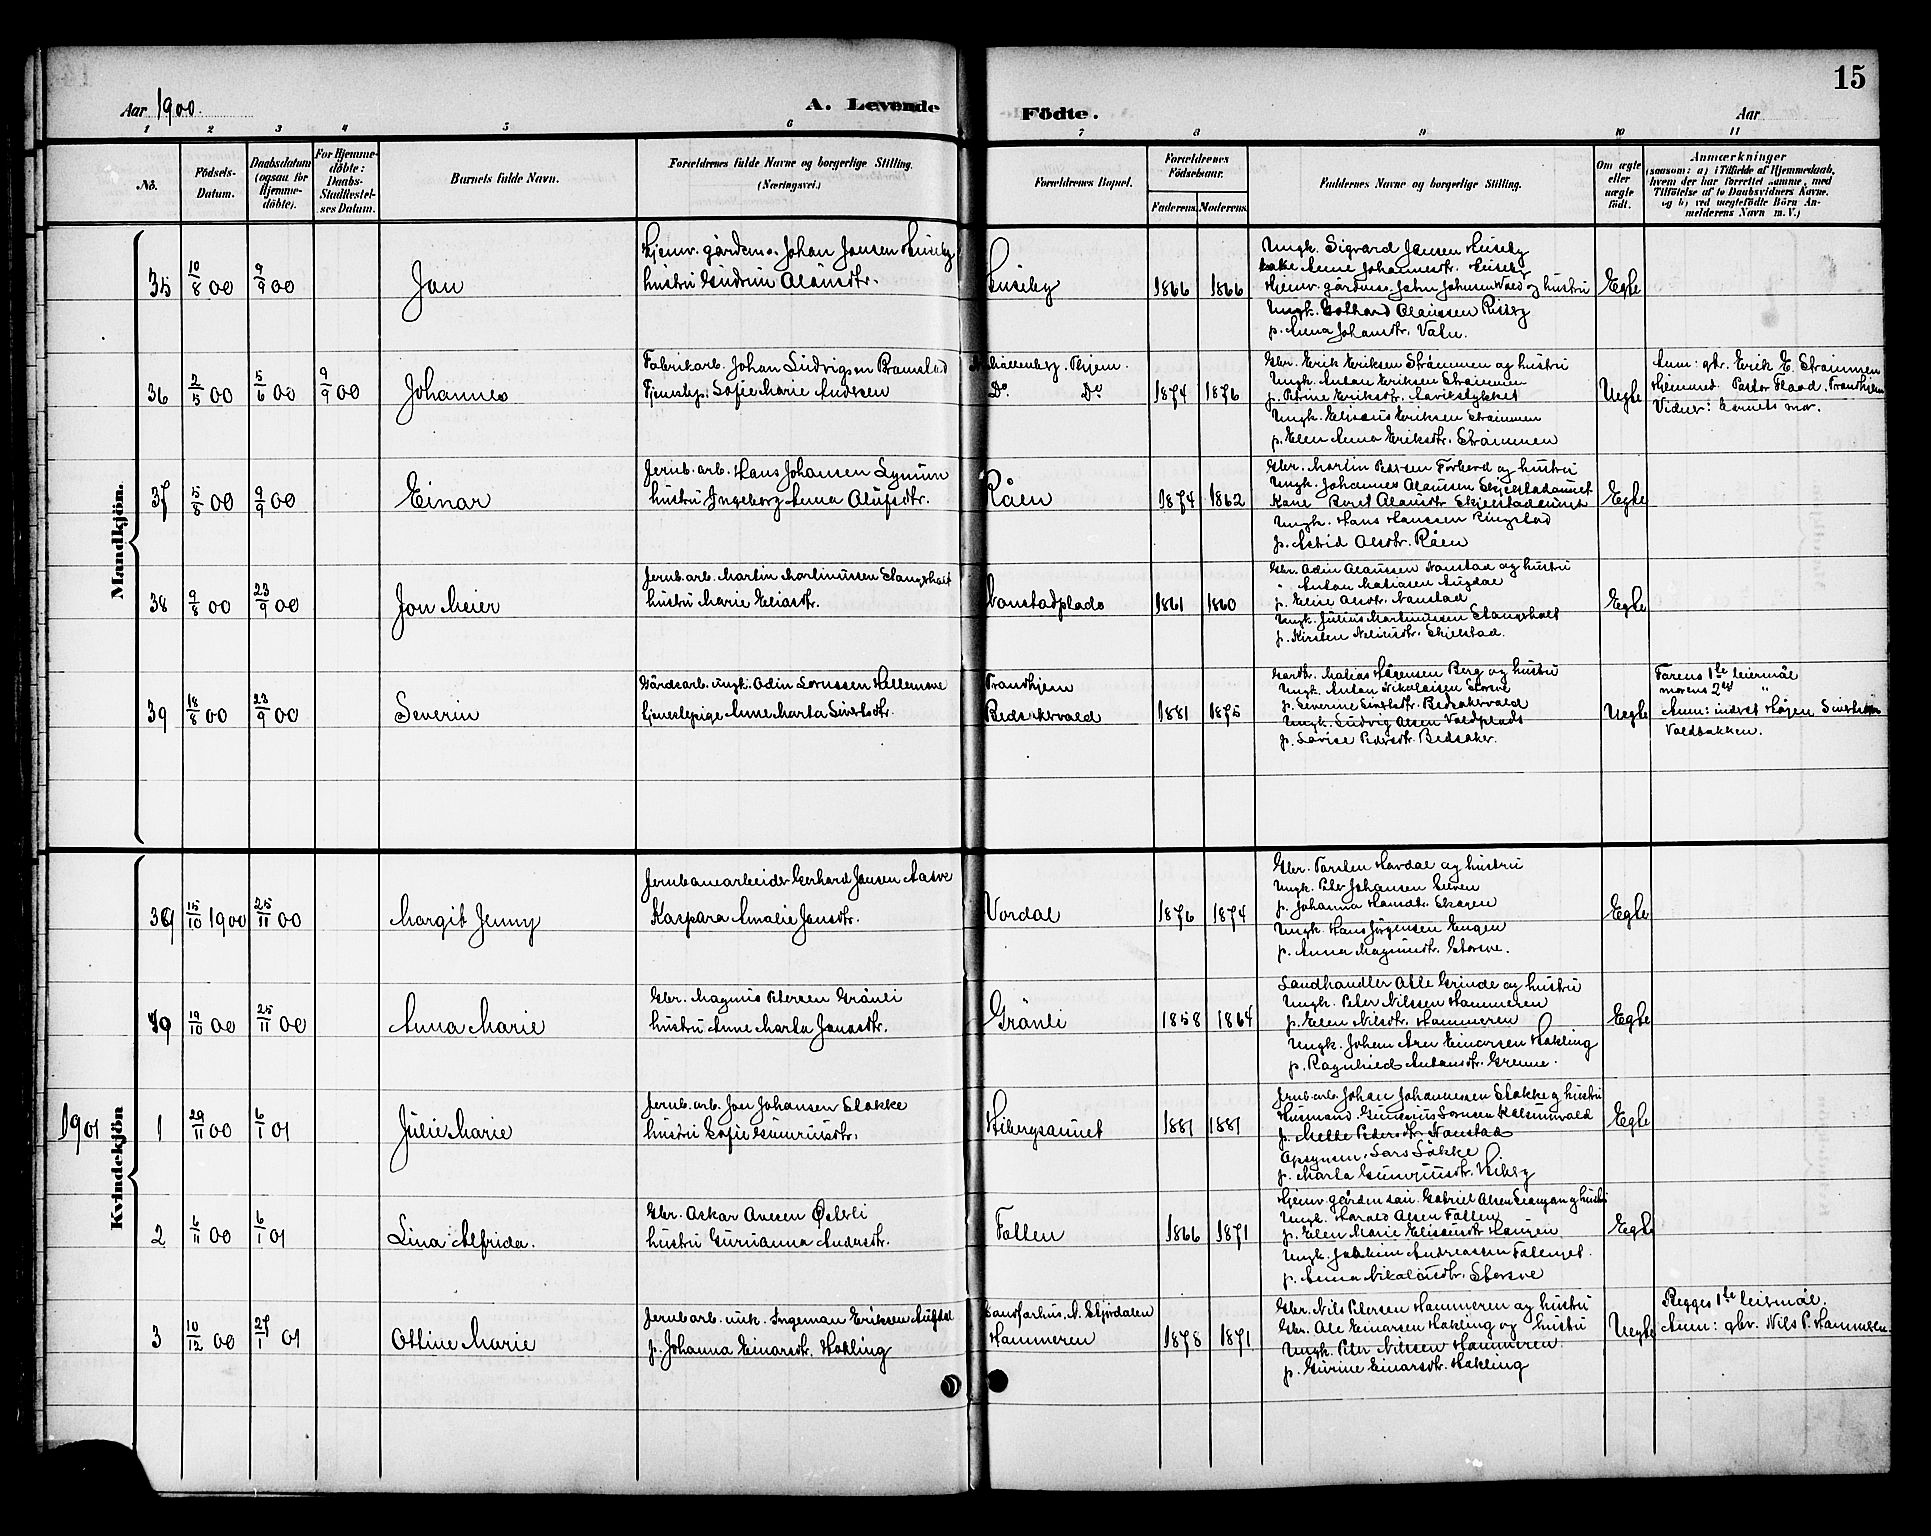 15
Aar 1900.
A. Levende Födte.
Aar
1 2 3 4 5 6 7 8 9 10 11
No.
Födsels-Datum.
Daabsdatum (ogsaa for Hjemme-döbte).
For Hjemme-döbte: Daabs-Stadfæstel-ses Datum.
Barnets fulde Navn.
Forældrenes fulde Navne og borgerlige Stilling. (Næringsvei.)
Forældrenes Bopæl.
Forældrenes Födselsaar.
Faderens. Moderens.
Faddernes Navne og borgerlige Stilling.
Om ægte eller uægte födt.
Anmærkninger
(saasom: a) i Tilfælde af Hjemmedaab, hvem der har forrettet samme, med Tilföielse af to Daabsvidners Navne. og b) ved uægtefödte Börn An-melderens Navn m. V.)
Mandkjön.
35 10/8 00 9/9 00
Jon
Hjemv. gårdm. Johan Jonsen Huseby
hustru Gudrun Olausdtr.
Huseby
1866 1866
Ungk. Sigvard Jensen Huseby
Anne Johannesdtr. Huseby
Hjemv. gårdm. John Johnsen Vold og hustru
Ungk. Gothard Olaussen Risby
p. Anna Johansdtr. Valu.
Egte
36 2/5 00 5/6 00 9/9 00
Johannes
Fabrikarb. Johan Ludvigsen Bramstad
Tjenestep: Sofie Marie Andsen
Møllenberg. Thjem.
Do. Do
1874 1876
Gbr. Erik Eriksen Strømmen og hustru
Ungk. Anton Eriksen Strømmen
p. Petrine Eriksdtr. Aavikstykket
Ungk. Elisæus Eriksen Strømmen
p. Elen Anna Eriksdtr. Strømmen
Uegte
Anm. gbr. Erik E. Strømmen
Hjemmed. Pastor Flood, Trondhjem
Vidner: barnets mor.
37 5/8 00 9/9 00
Einar
Jernb. arb. Hans Johansen Lynum
hustru Ingeborg Anna Olufsdtr.
Råen
1874 1862
Gbr. Martin Petersen Forbord og hustru
Ungk. Johannes Olaussen Skjelstadaunet
Kone Beret Olausdtr Skjelstadaunet
Ungk. Hans Hanssen Ringstad
p. Astrid Olsdtr. Råen
Egte
38 9/8 00 23/9 00
Jon Meier
Jernb. arb. Martin Martinussen Stangshalt
hustru Marie Eliasdtr.
Nonstadplads
1861 1860
Gbr. Odin Olaussen Nonstad og hustru
" Anton Matiasen Augdal
p. Eline Olsdtr. Nonstad
Ungk. Julius Martinussen Stangshalt
p. Kirsten Neliusdtr. Skjelstad.
Egte
39 18/8 00 23/9 00
Severin
Gårdsarb. ungk. Odin Lornssen Hellemsve
tjenestepige Anne Marta Sivertsdtr.
Trondhjem
Bedsakervald
1881 1875
Gaardbr. Matias Hågensen Berg og hustru
Ungk. Anton Nikolaisen Storsve
p. Severine Sivertsdtr. Bedsakervald
Ungk. Ludvig Olsen Voldplads
p. Lovise Pedersdtr. Bedsaker.
Uegte
Farens 1ste leiermål
morens 2det "
Anm: indrst Håjen Sivertsen
Voldbakken.
Kvindekjön
39 15/10 1900 25/11 00
Margit Jenny
Jernbanearbeider Gerhard Jonsen Aasve
Kaspara Amalie Jonsdtr.
Vordal
1876 1874
Gbr. Torsten Hordal og hustru
Ungk. Peter Johansen Elven
p. Johanna Hansdtr. Skogen
Ungk. Hans Jørgensen Engen
p. Anna Magnusdtr. Storsve.
Egte
40 19/10 00 25/11 00
Anna Marie
Gbr. Magnus Petersen Grönli
hustru Anne Marta Jonasdtr.
Grönli
1858 1864
Landhandler Atle Grinde og hustru
Ungk. Peter Nilssen Hammeren
p. Elen Nilsdtr. Hammeren
Ungk. Johan Arn Einarsen Hokling
p. Ragnhild Antonsdtr. Grenne.
Egte
1901
1 26/11 00 6/1 01
Julie Marie
Jernb. arb. Jon Johansen Stokke
hustru Sofie Gunriusdtr.
Hibergsaunet
1881 1881
Jernb. arb. Johan Johannessen Stokke og hustru
Husmand Gunerius Lornsen Kelsumvald
p. Mette Pedersdtr. Nonstad
Opsynsm. Lars Løkke
p. Marta Gunriusdtr. Heiberg
Egte
2 6/11 00 6/1 01
Lina Alfrida.
Gbr. Oskar Ovesen Österli
hustru Gurianna Andersdtr.
Follen
1866 1871
Hjemv. gårdm søn Gabriel Olsen Leangan og hustru
Ungk. Harald Olsen Follen
p. Elen Marie Elisæusdtr. Haugen
Ungk. Joakim Andreassen Folenget.
p. Anna Nikolausdtr. Storsve
Egte
3 10/12 00 27/1 01
Ottine Marie
Jernb arb. unk. Ingeman Eriksen Aufdal
p. Johanna Einarsdtr. Hokling
Sandfærhus, N. Stjørdalen
Hammeren
1878 1871
Gbr. Nils Petersen Hammeren og hustru
Gbr. Ole Einarsen Hokling og hustru
Ungk. Peter Nilssen Hammeren
p. Gurine Einarsdtr. Hokling
Uegte
Begges 1ste leiermål.
Anm: gbr. Nils P. Hammeren.